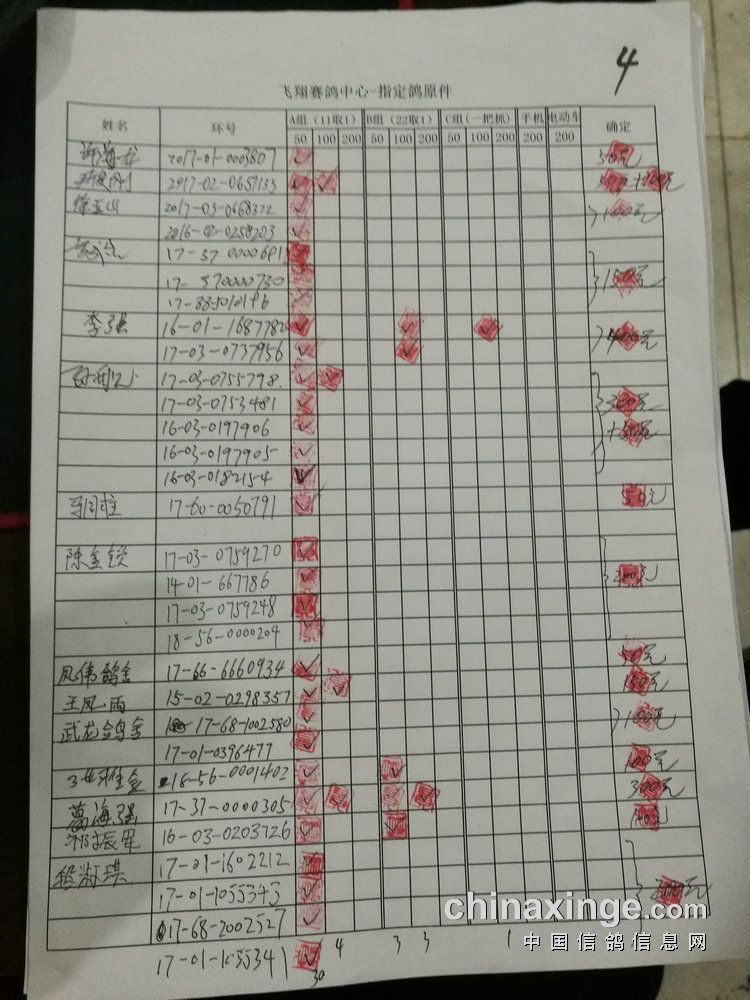 4
飞翔赛鸽中心-指定鸽原件
姓名 环号 A组（11取1） B组（22取1） C组（一把抓） 手机 电动车 确定
50 100 200 50 100 200 50 100 200 200 200
2017-01-0003807 ✓ 50元
2017-02-0657133 ✓ ✓
2017-03-0668322 ✓ 100元
2016-02-0258203 ✓
17-37-0000691
17-370000730 150元
17-
李强 16-01-1687782 ✓ ✓ ✓ 400元
17-03-0737956 ✓ ✓
17-03-0755798 ✓ ✓
17-03-0753481 ✓ 300元
16-03-0197906 ✓ +50元
16-03-0197905 ✓
16-03-0182154 ✓
17-60-0050791 ✓ 50元
陈金锁 17-03-0759270 ✓
14-01-667786 ✓ 200元
17-03-0759248 ✓
18-56-0000204 ✓
凤伟鸽舍 17-66-6660934 ✓ 50元
王凤雨 15-02-0298357 ✓ ✓ 150元
武龙鸽舍 17-68-1002580 ✓ 100元
17-01-0396477 ✓
18-56-0001402 ✓ ✓ 100元
葛海强 17-37-0000305 ✓ ✓ ✓ ✓ 300元
祁振军 16-03-0203726 ✓ ✓
17-01-1602212 ✓
17-01-1055343 ✓ 200元
17-68-2002527 ✓
17-01-1055341 ✓
30 4 3 3 1
chinaxinge.com
中国信鸽信息网